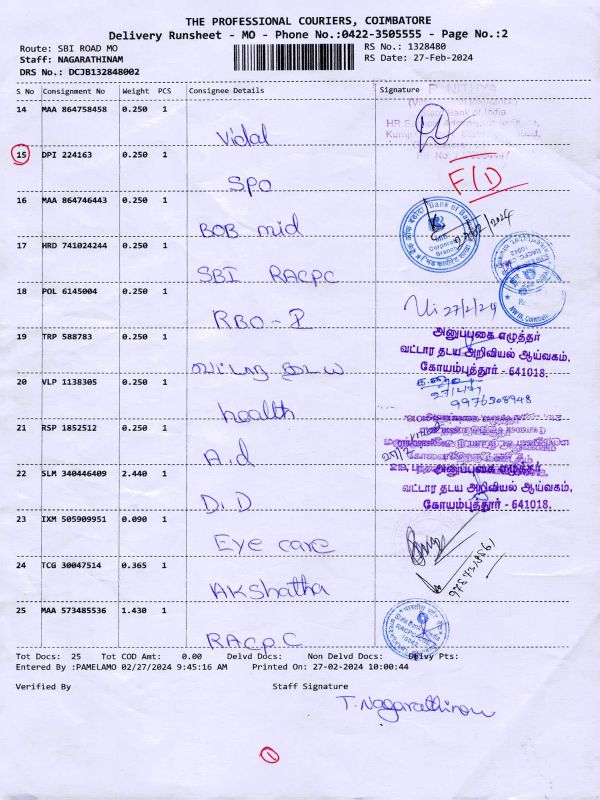 THE PROFESSIONAL COURIERS, COIMBATORE
Delivery Runsheet - MO - Phone No.:0422-3505555 - Page No.:2
Route: SBI ROAD MO RS No.: 1328480
Staff: NAGARATHINAM RS Date: 27-Feb-2024
DRS No.: DCJB132848002
S No Consignment No Weight PCS Consignee Details Signature
14 MAA 864758458 0.250 1
Vidal
15 DPI 224163 0.250 1
SPO F/D
16 MAA 864746443 0.250 1
BOB mid
17 HRD 741024244 0.250 1
SBI RACPC
18 POL 6145004 0.250 1
RBO-I 27/2/24
19 TRP 588783 0.250 1
வட்டார தடய
அனுப்புகை எழுத்தர்
வட்டார தடய அறிவியல் ஆய்வகம்,
கோயம்புத்தூர் - 641018.
20 VLP 1138305 0.250 1
health 9976508948
21 RSP 1852512 0.250 1
A.d
22 SLM 340446409 2.440 1
D.D
அனுப்புகை எழுத்தர்
வட்டார தடய அறிவியல் ஆய்வகம்,
கோயம்புத்தூர் - 641018.
23 IXM 505909951 0.090 1
Eye care
24 TCG 30047514 0.365 1
AKshatha
25 MAA 573485536 1.430 1
RACPC
Tot Docs: 25 Tot COD Amt: 0.00 Delvd Docs: Non Delvd Docs: Delvy Pts:
Entered By :PAMELAMO 02/27/2024 9:45:16 AM Printed On: 27-02-2024 10:00:44
Verified By Staff Signature
T. Nagarathinam
1